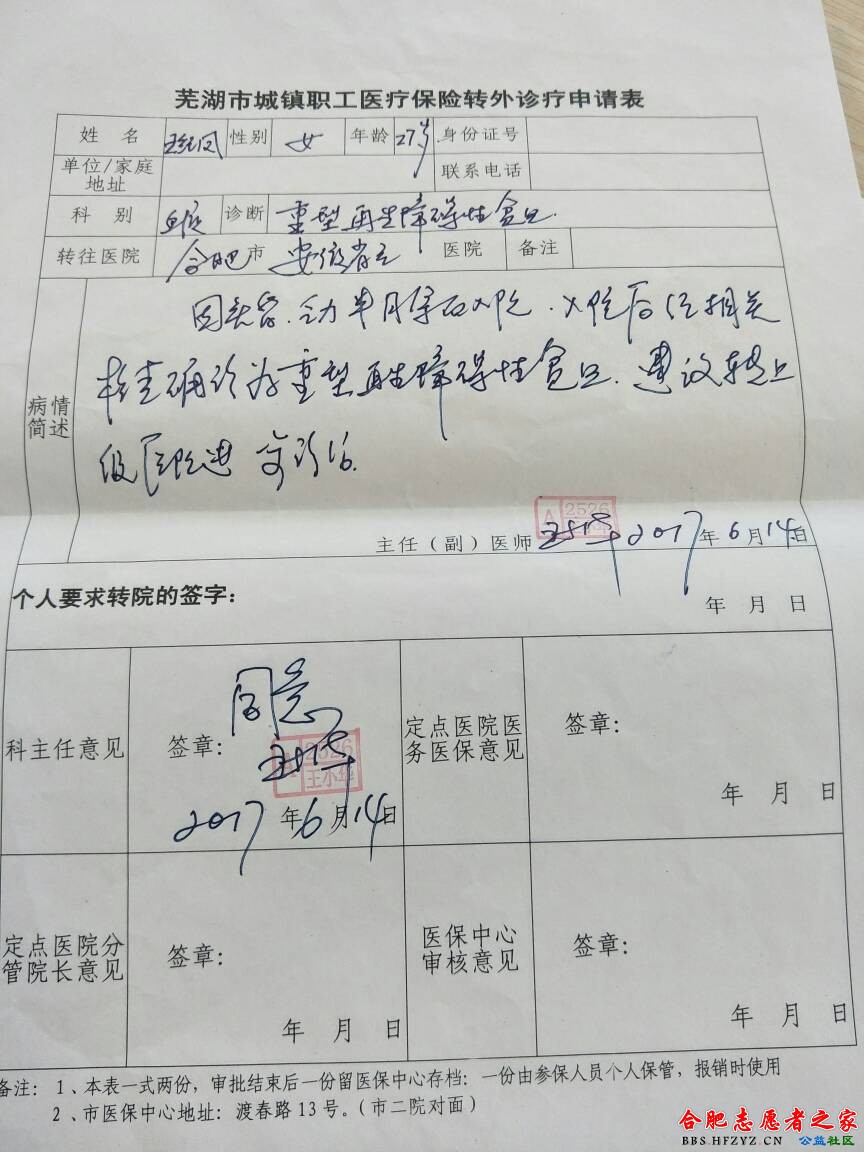 芜湖市城镇职工医疗保险转外诊疗申请表
姓 名 性别 女 年龄 27岁 身份证号
单位/家庭地址 联系电话
科 别 血液 诊断 重型再生障碍性贫血.
转往医院 合肥市 安徽省立 医院 备注
病情简述
因头昏.乏力半月余而入院.入院后经相关
检查确诊为重型再生障碍性贫血.建议转上
级医院进一步诊治.
A 2526
主任（副）医师 2017年6月14日
个人要求转院的签字：
年 月 日
科主任意见 签章： 同意
A 2526
王小华
2017年6月14日
定点医院医务医保意见 签章：
年 月 日
定点医院分管院长意见 签章：
年 月 日
医保中心审核意见 签章：
年 月 日
备注：1、本表一式两份，审批结束后一份留医保中心存档；一份由参保人员个人保管，报销时使用
2、市医保中心地址：渡春路13号。（市二院对面）
合肥志愿者之家
BBS.HFZYZ.CN 公益社区